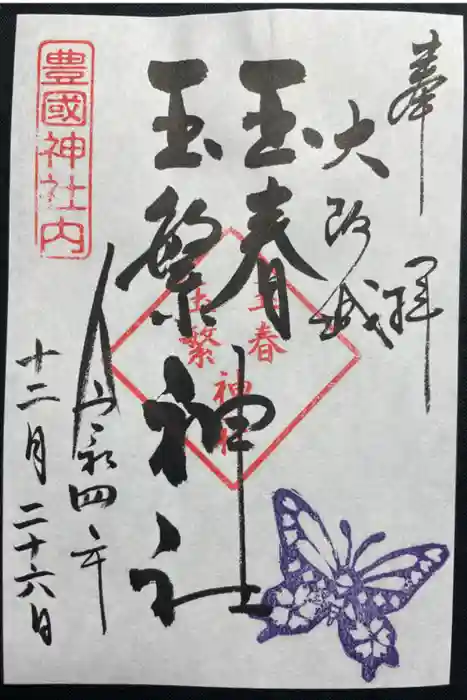 奉拝
大阪城
玉春
玉繁神社
玉春
玉繁
神社
令和四年
十二月二十六日
豊國神社内